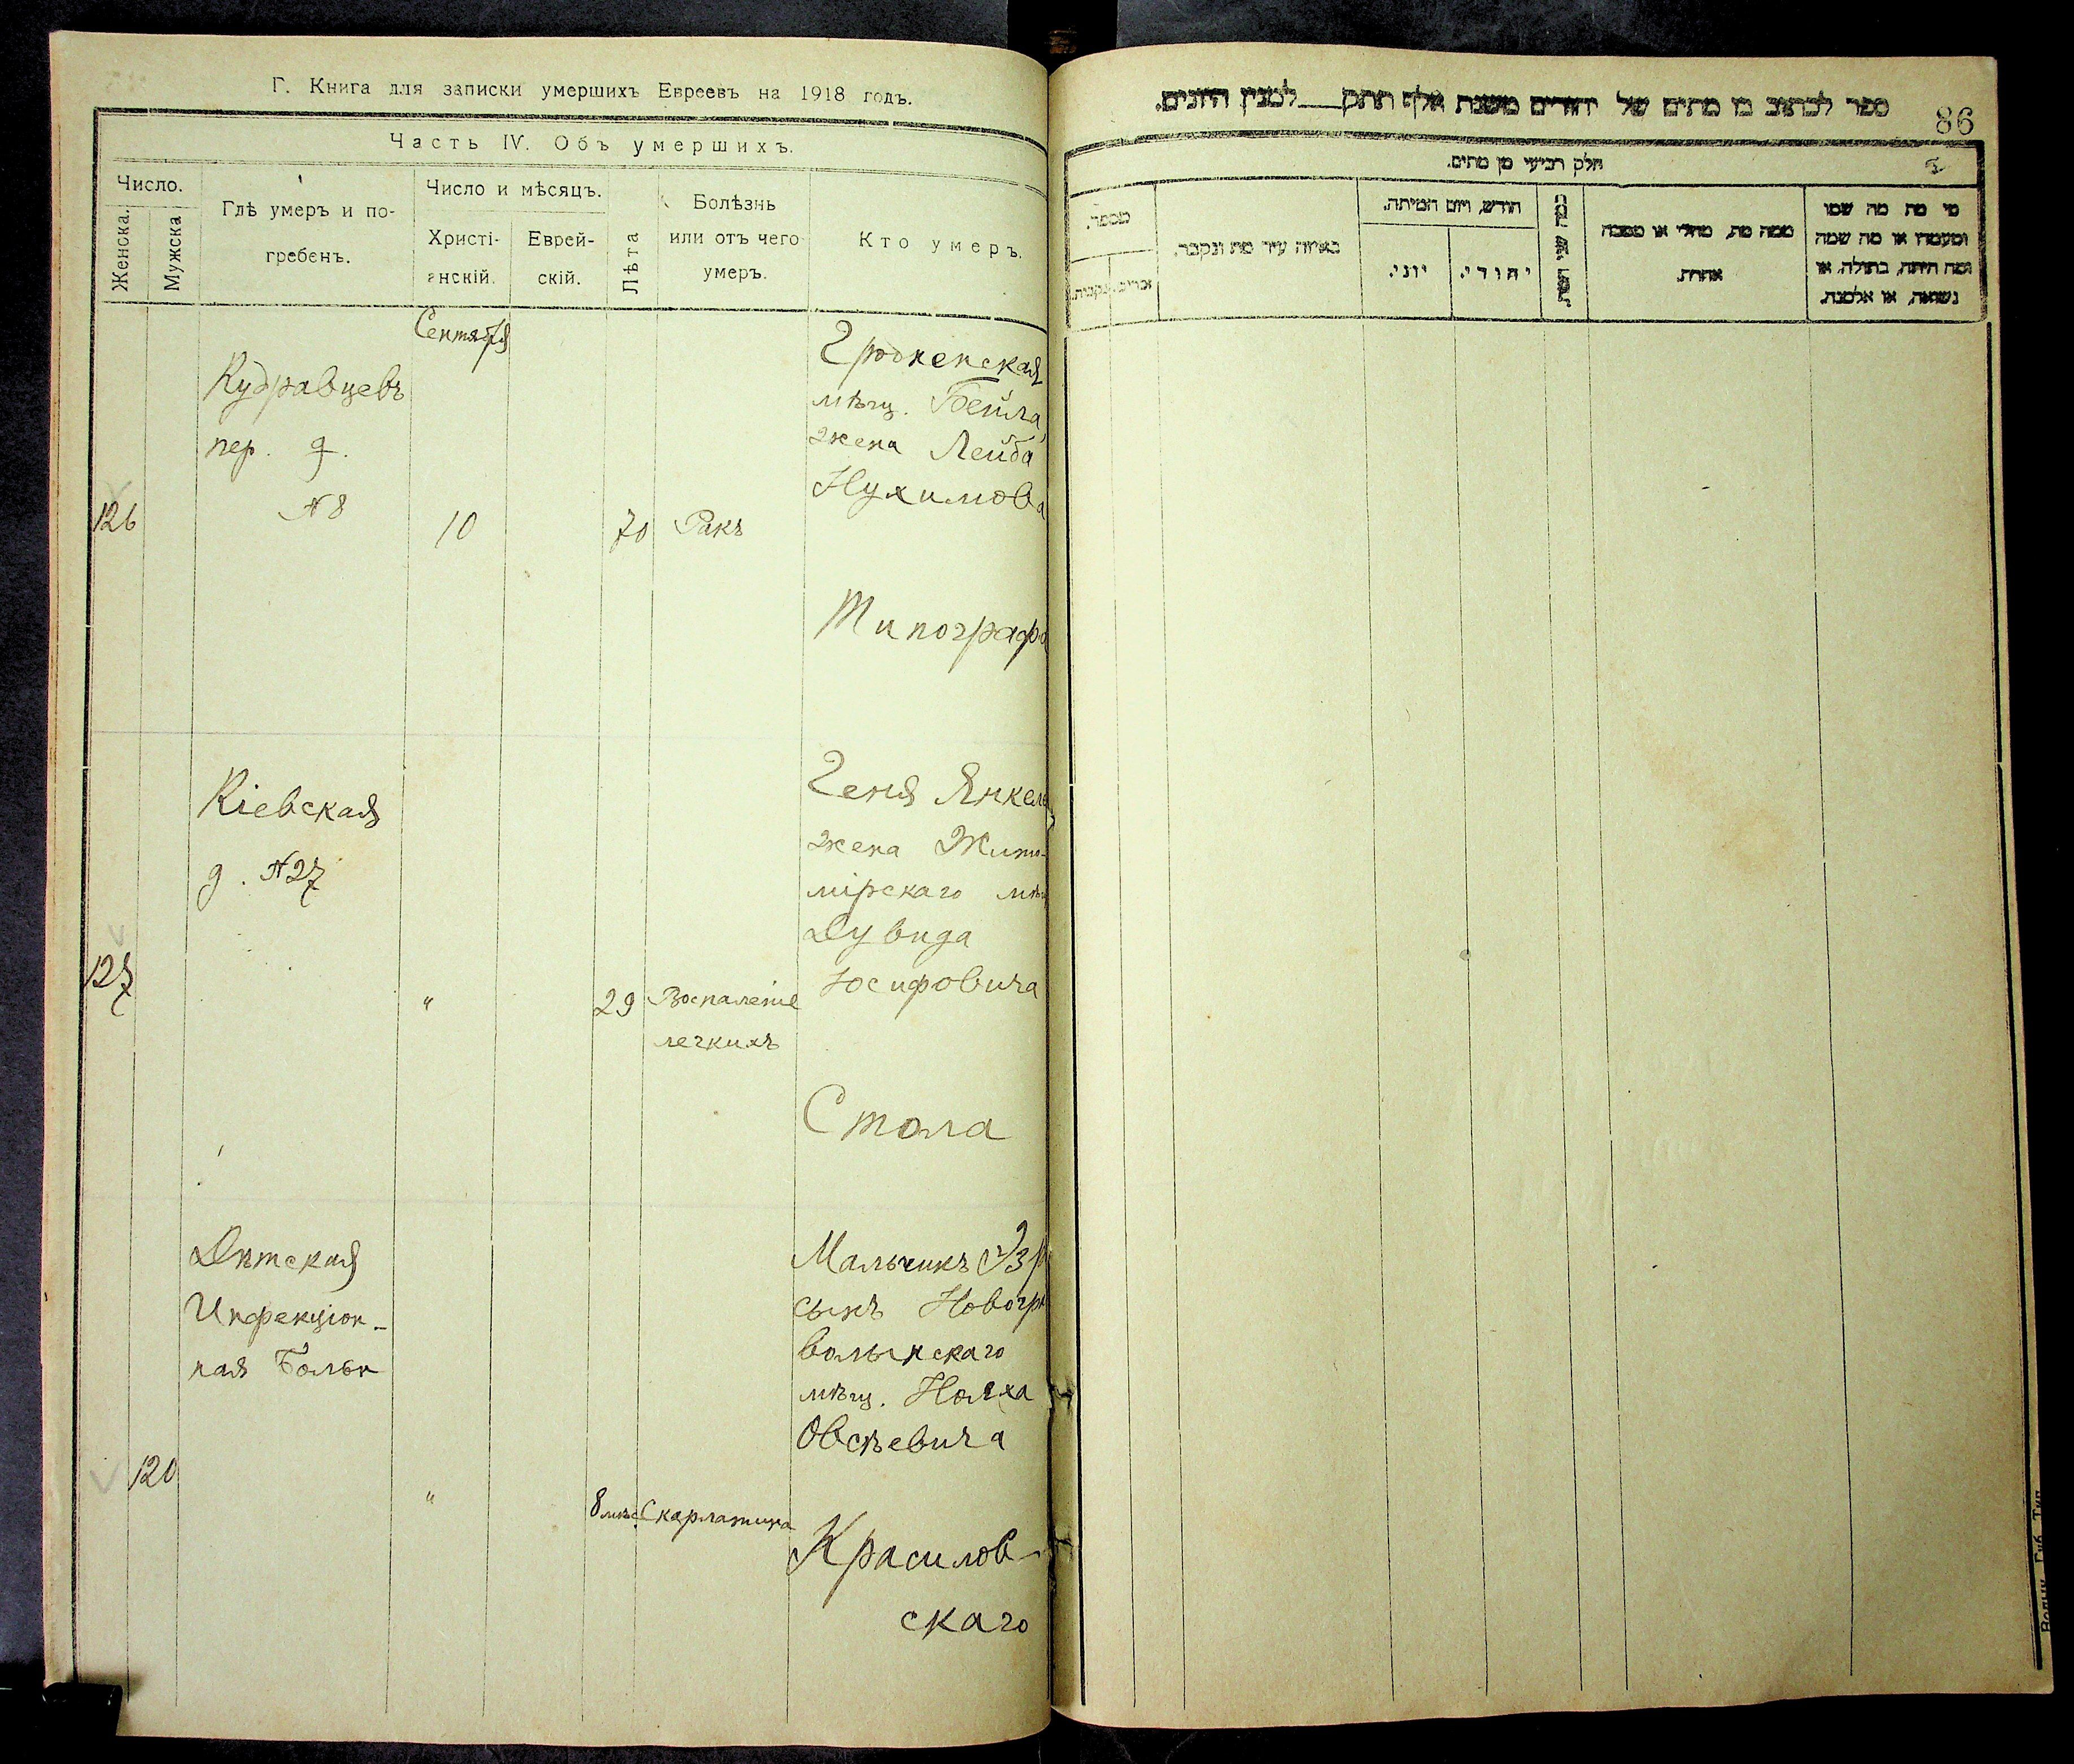 Г. Книга для записки умершихъ Евреевъ на 1918 годъ.
Часть IV. Объ умершихъ.
Число.
Женска.
Мужска
Гдѣ умеръ и по-
гребенъ.
Число и мѣсяцъ.
Христі-
анскій.
Еврей-
скій.
Лѣта
Болѣзнь
или отъ чего
умеръ.
Кто умеръ.
Сентября
126
Кудравцевъ
пер. д.
№8
10
70
Ракъ
Гродненская
мѣщ. Бейла
жена Лейба
Нухимова
Типограф
127
Кіевская
д. №27
"
29
Воспаленіе
легкихъ
Геня Янкел
жена Жито-
мірскаго мѣщ
Дувида
Іосифовича
Стола
120
Дѣтская
Инфекціон-
ная Больн
"
8 мѣс.
Скарлатина
Мальчикъ
сынъ Новогр
волынскаго
мѣщ.
Овсѣевича
Красилов-
скаго
ספר לכתוב בו מתים של יהודים משנת אלף תתק למנין היונים.
86
חלק רביעי מן מתים.
מספר.
זכרים.
נקבות.
באיזה עיר מת ונקבר.
חודש, ויום המיתה.
יוני.
יהודי.
כמה שני חייו.
ממה מת, מחלי או מסבה
אחרת.
מי מת מה שמו
ומעמדו או מה שמה
ומה היתה, בתולה, או
נשואה, או אלמנה.
Волын. Губ. Тип.